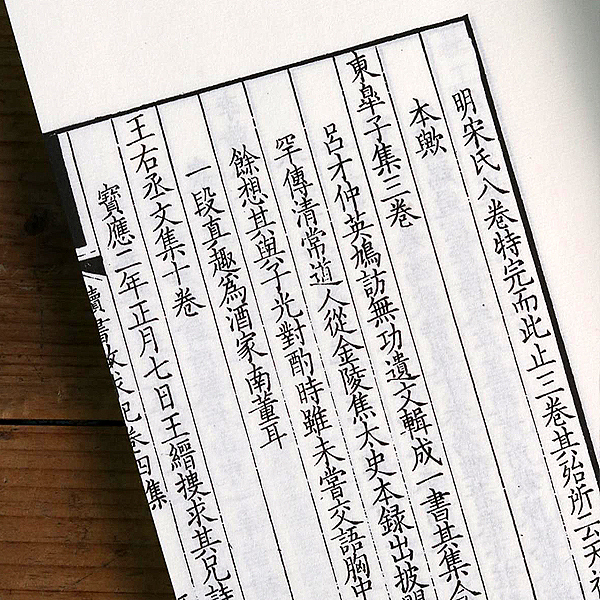 明宋氏八卷特完而此止三卷其殆所云天
本歟
東皋子集三卷
呂才仲英鳩訪無功遺文輯成一書其集今
罕傳清常道人從金陵焦太史本錄出披閱
餘想其與子光對酌時雖未嘗交語胸中
一段真趣為酒家南董耳
王右丞文集十卷
寶應二年正月七日王縉搜求其兄詩
讀書敏求記卷四集